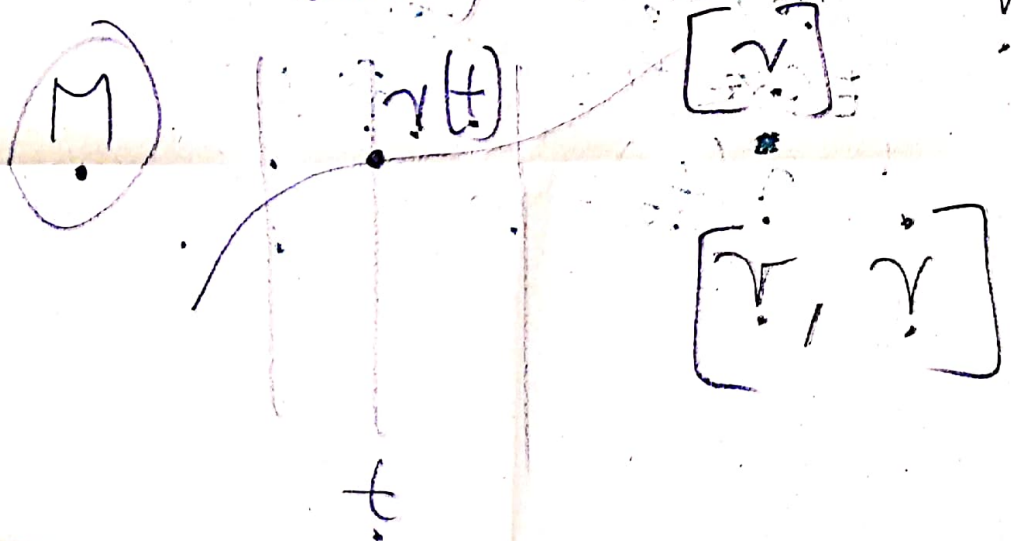 M
γ(t)
[γ]
[γ, γ]
t